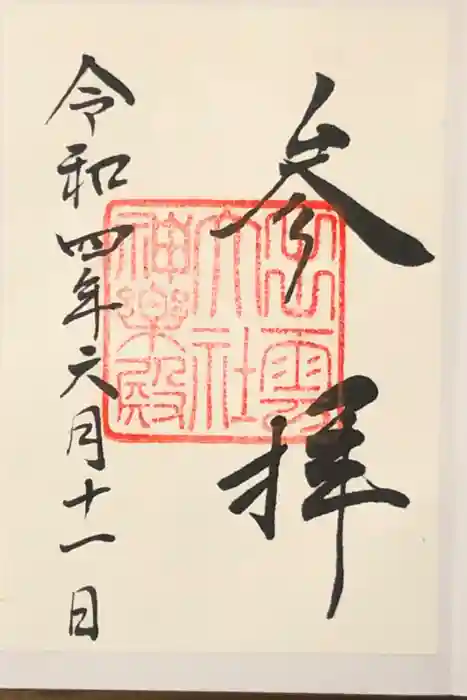 参拝
出雲
大社
神楽殿
令和四年六月十一日